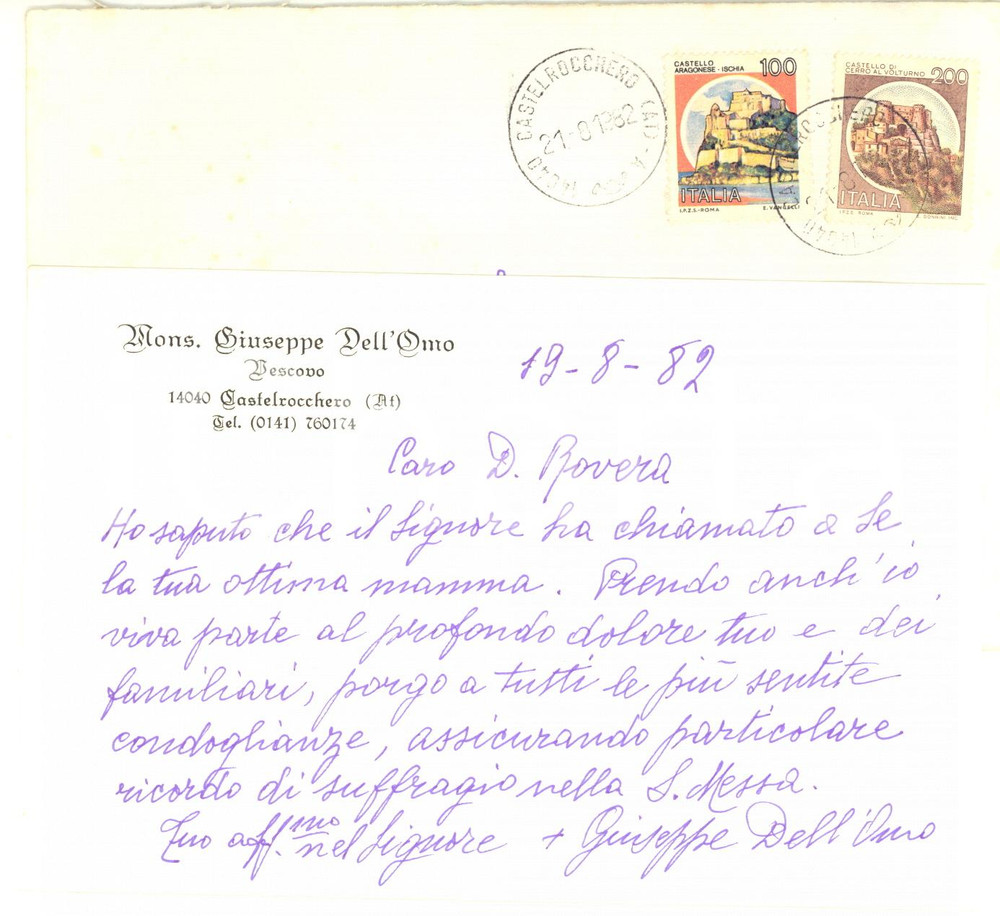 CASTELROCCHERO (AT)
14040
CASTELLO
ARAGONESE - ISCHIA
100
ITALIA
I.P.Z.S. - ROMA
E. VANGELLI
CASTELLO DI
CERRO AL VOLTURNO
200
ITALIA
I.P.Z.S. ROMA
DONNINI INC.
Mons. Giuseppe Dell'Omo
Vescovo
14040 Castelrocchero (At)
Tel. (0141) 760174
19-8-82
Caro D. Rovera
Ho saputo che il Signore ha chiamato a Se
la tua ottima mamma. Prendo anch'io
viva parte al profondo dolore tuo e dei
familiari, porgo a tutti le più sentite
condoglianze, assicurando particolare
ricordo di suffragio nella S. Messa.
Tuo aff.mo nel Signore + Giuseppe Dell'Omo